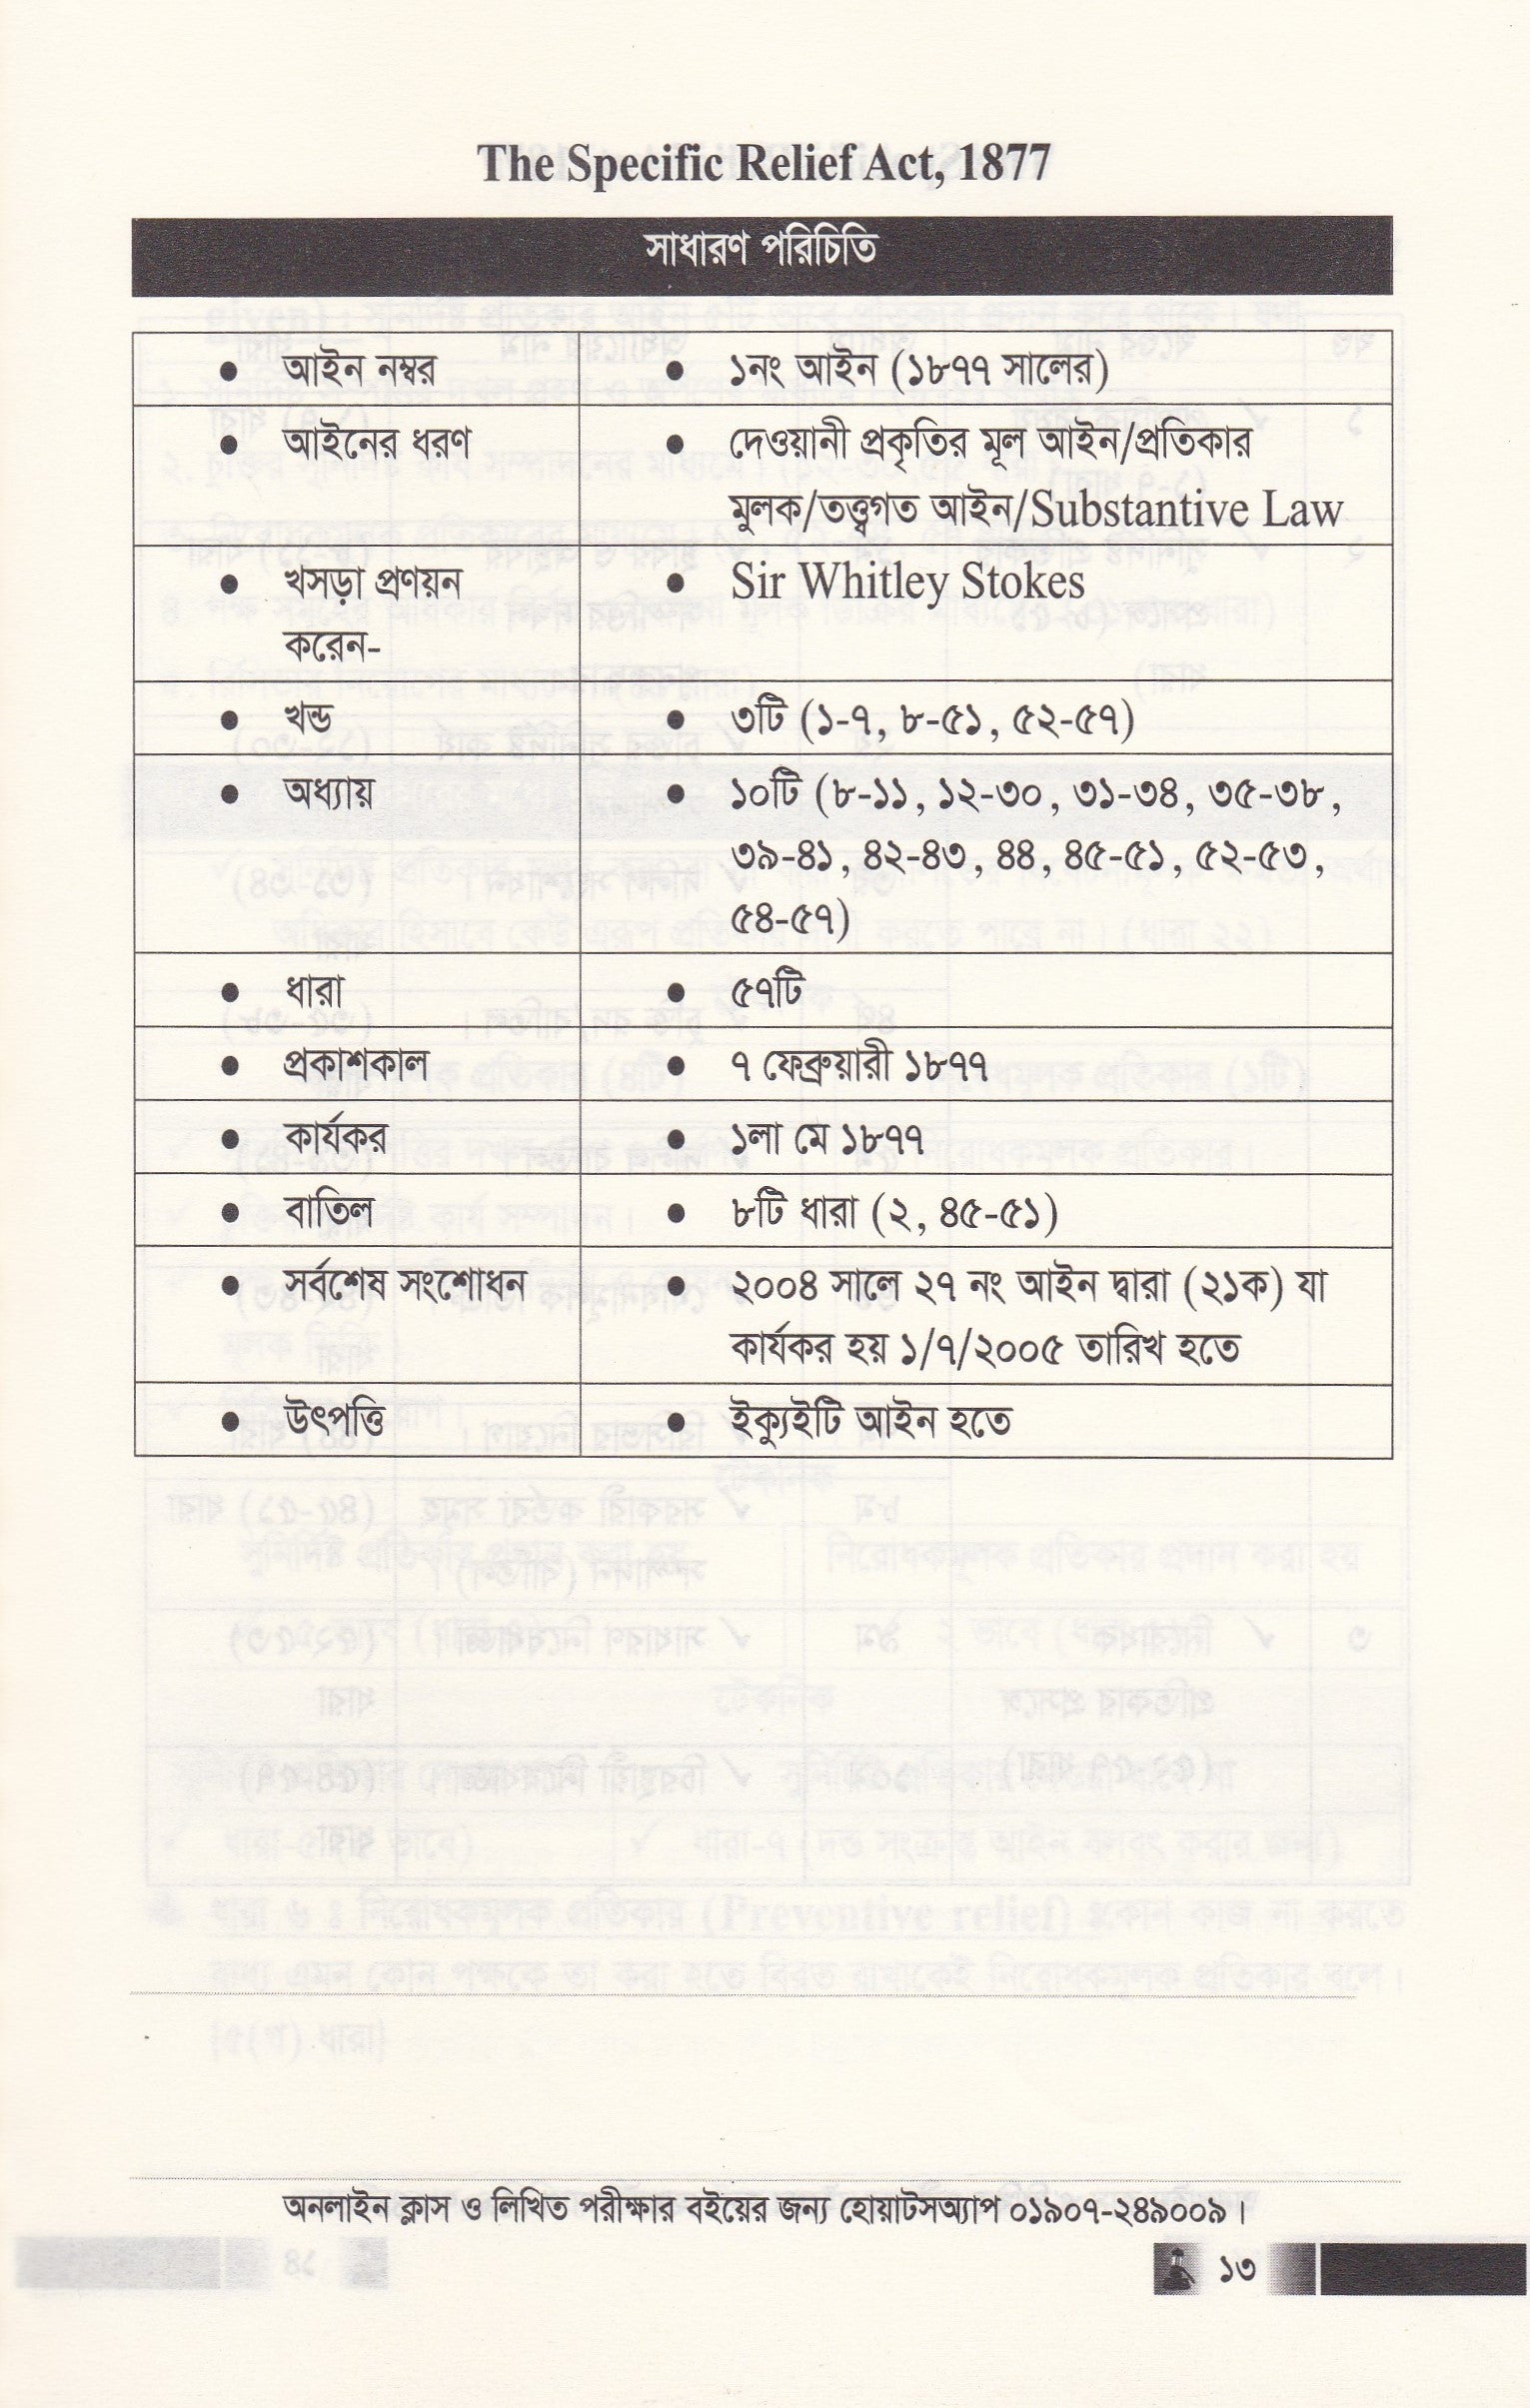 The Specific Relief Act, 1877
সাধারণ পরিচিতি
● আইন নম্বর ● ১নং আইন (১৮৭৭ সালের)
● আইনের ধরণ ● দেওয়ানী প্রকৃতির মূল আইন/প্রতিকার
মুলক/তত্ত্বগত আইন/Substantive Law
● খসড়া প্রণয়ন ● Sir Whitley Stokes
করেন-
● খন্ড ● ৩টি (১-৭, ৮-৫১, ৫২-৫৭)
● অধ্যায় ● ১০টি (৮-১১, ১২-৩০, ৩১-৩৪, ৩৫-৩৮,
৩৯-৪১, ৪২-৪৩, ৪৪, ৪৫-৫১, ৫২-৫৩,
৫৪-৫৭)
● ধারা ● ৫৭টি
● প্রকাশকাল ● ৭ ফেব্রুয়ারী ১৮৭৭
● কার্যকর ● ১লা মে ১৮৭৭
● বাতিল ● ৮টি ধারা (২, ৪৫-৫১)
● সর্বশেষ সংশোধন ● ২০০৪ সালে ২৭ নং আইন দ্বারা (২১ক) যা
কার্যকর হয় ১/৭/২০০৫ তারিখ হতে
● উৎপত্তি ● ইক্যুইটি আইন হতে
অনলাইন ক্লাস ও লিখিত পরীক্ষার বইয়ের জন্য হোয়াটসঅ্যাপ ০১৯০৭-২৪৯০০৯।
১৩